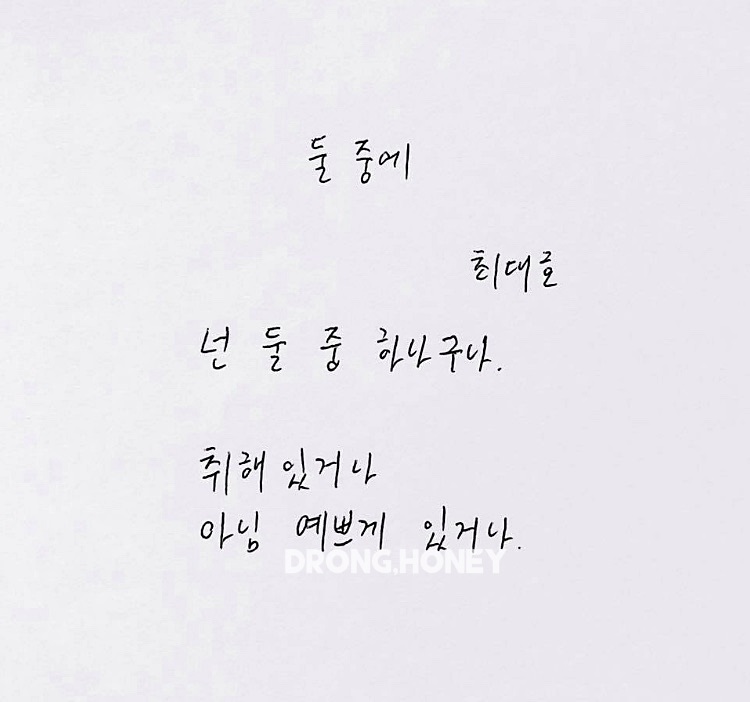 둘 중에
최대호
넌 둘 중 하나구나.
취해 있거나
아님 예쁘게 있거나.
DRONG.HONEY